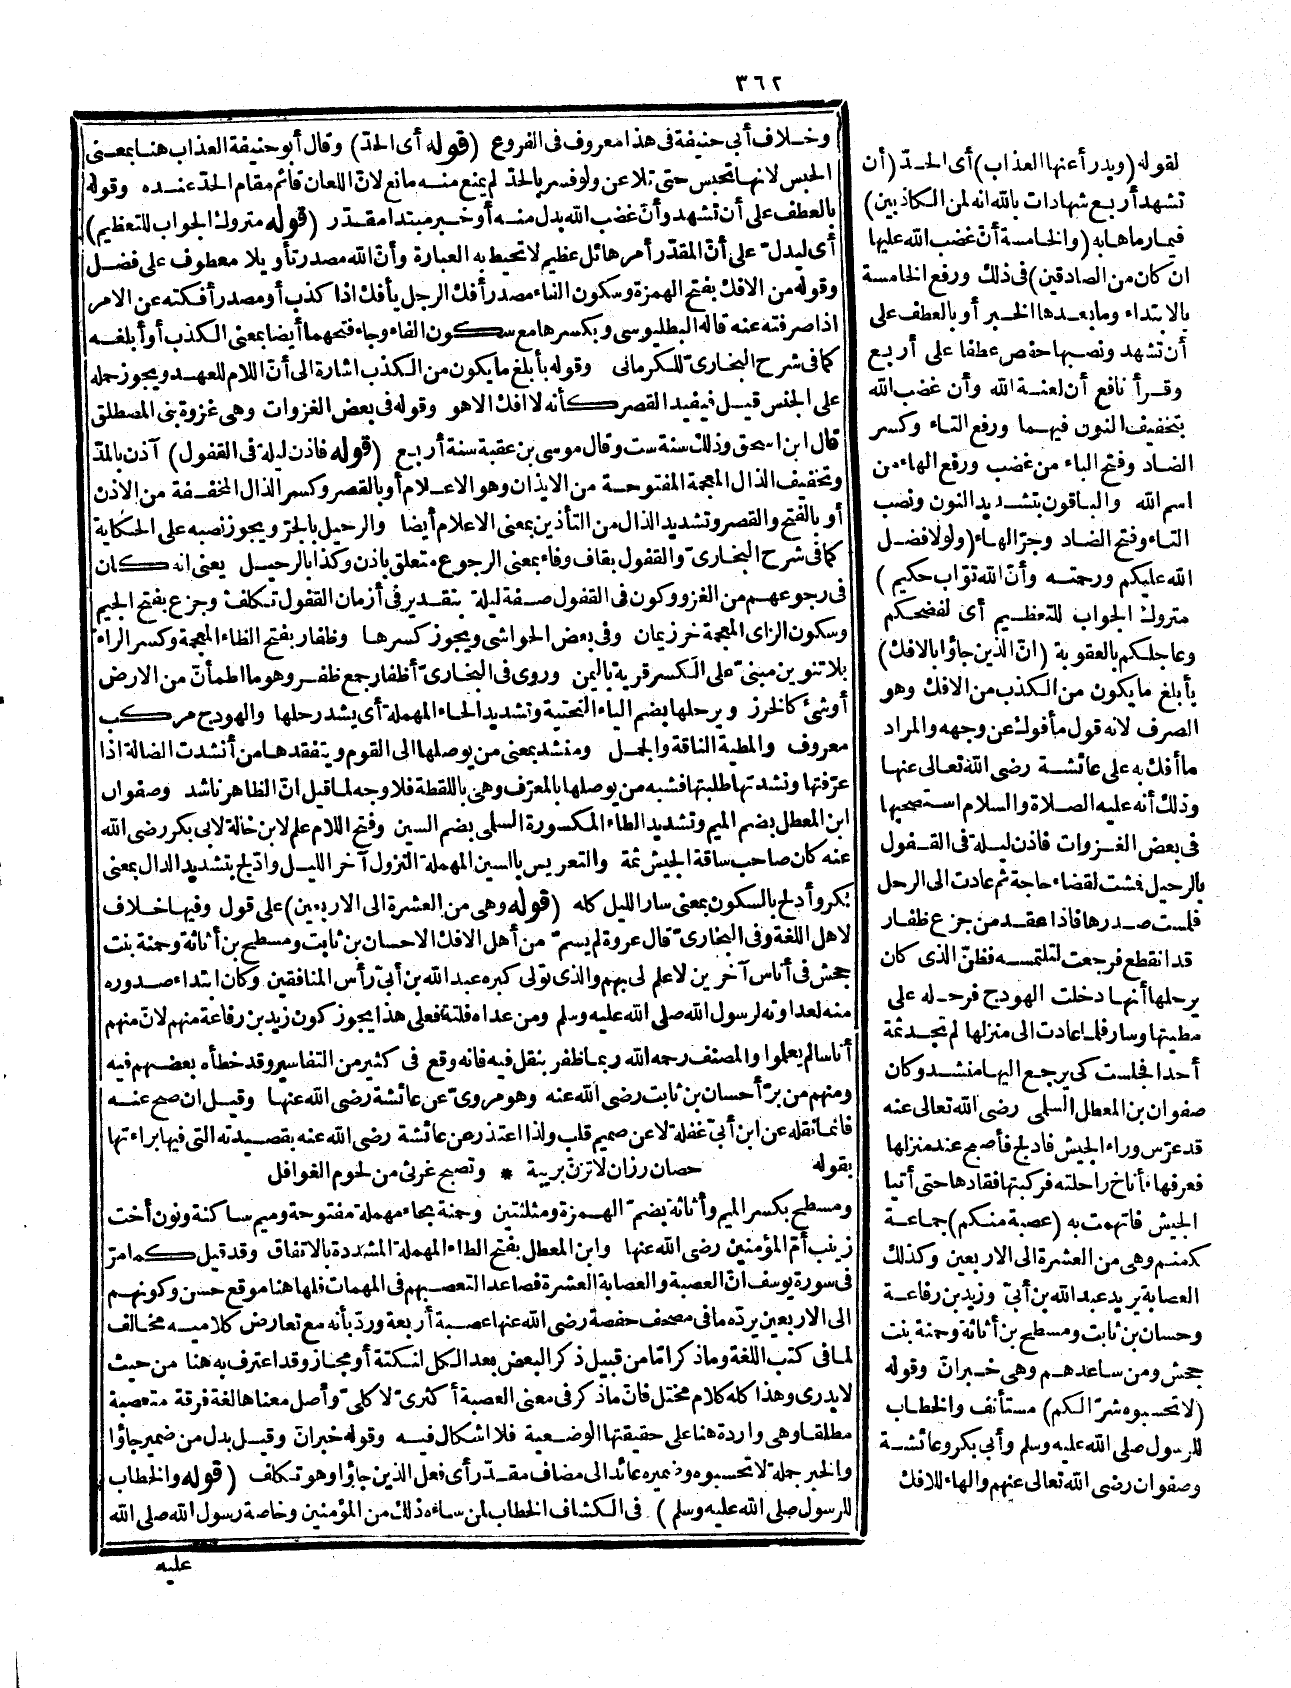 ٣٦٢
لقوله (ويدرأ عنها العذاب) أى الحدّ (أن
تشهد أربع شهادات بالله انه لمن الكاذبين)
فيما رماها به (والخامسة أنّ غضب الله عليها
ان كان من الصادقين) فى ذلك ورفع الخامسة
بالابتداء وما بعدها الخبر أو بالعطف على
أن تشهد ونصبها حفص عطفا على أربع
وقرأ نافع أن لعنة الله وأن غضب الله
بتخفيف النون فيهما ورفع التاء وكسر
الضاد وفتح الباء من غضب ورفع الهاء من
اسم الله والباقون بتشديد النون ونصب
التاء وفتح الضاد وجرّ الهاء (ولولا فضل
الله عليكم ورحمته وأنّ الله توّاب حكيم)
متروك الجواب للتعظيم أى لفضحكم
وعاجلكم بالعقوبة (انّ الذين جاؤا بالافك)
بأبلغ ما يكون من الكذب من الافك وهو
الصرف لانه قول مأفوك عن وجهه والمراد
ما أفك به على عائشة رضى الله تعالى عنها
وذلك أنه عليه الصلاة والسلام استصحبها
فى بعض الغزوات فاذن ليلة فى القفول
بالرحيل فشت لقضاء حاجة ثم عادت الى الرحل
فلمست صدرها فاذا عقد من جزع ظفار
قد انقطع فرجعت لتلتمسه فظنّ الذى كان
يرحلها أنها دخلت الهودج فرحله على
مطيتها وسار فلما عادت الى منزلها لم تجد ثمة
أحدا فجلست كى يرجع اليها منشد وكان
صفوان بن المعطل السلمى رضى الله تعالى عنه
قد عرّس وراء الجيش فادلج فأصبح عند منزلها
فعرفها فأناخ راحلته فركبتها فقادها حتى أتيا
الجيش فاتهمت به (عصبة منكم) جماعة
كمنم وهى من العشرة الى الاربعين وكذلك
العصابة يريد عبد الله بن أبىّ وزيد بن رفاعة
وحسان بن ثابت ومسطح بن أثاثة وحمنة بنت
جحش ومن ساعدهم وهى خبرانّ وقوله
(لا تحسبوه شرّا لكم) مستأنف والخطاب
للرسول صلى الله عليه وسلم وأبى بكر وعائشة
وصفوان رضى الله تعالى عنهم والهاء للافك
وخلاف أبى حنيفة فى هذا معروف فى الفروع (قوله أى الحدّ) وقال أبو حنيفة العذاب هنا بمعنى
الحبس لانها تحبس حتى تلاعن ولو فسر بالحدّ لم يمنع منه مانع لانّ اللعان قائم مقام الحدّ عنده وقوله
بالعطف على أن تشهد وأنّ غضب الله بدل منه أو خبر مبتدا مقدّر (قوله متروك الجواب للتعظيم)
أى ليدل على أنّ المقدّر أمر هائل عظيم لا تحيط به العبارة وأنّ الله مصدر تأويلا معطوف على فضل
وقوله من الافك بفتح الهمزة وسكون الفاء مصدر أفك الرجل يأفك اذا كذب أو مصدر أفكته عن الامر
اذا صرفته عنه قاله البطليوسى وبكسرها مع سكون الفاء وجاء فتحهما أيضا بمعنى الكذب أو أبلغه
كما فى شرح البخارىّ للكرمانى وقوله بأبلغ ما يكون من الكذب اشارة الى أنّ اللام للعهد ويجوز حمله
على الجنس قيل فيفيد القصر كأنه لا افك الا هو وقوله فى بعض الغزوات وهى غزوة بنى المصطلق
قال ابن اسحق وذلك سنة ست وقال موسى بن عقبة سنة أربع (قوله فاذن ليلة فى القفول) آذن بالمدّ
وتخفيف الذال المعجمة المفتوحة من الايذان وهو الاعلام أو بالقصر وكسر الذال المخففة من الاذن
أو بالفتح والقصر وتشديد الذال من التأذين بمعنى الاعلام أيضا والرحيل بالجرّ ويجوز نصبه على الحكاية
كما فى شرح البخارىّ والقفول بقاف وفاء بمعنى الرجوع متعلق باذن وكذا بالرحيل يعنى انه كان
فى رجوعهم من الغزو وكون فى القفول صفة ليلة بتقدير فى أزمان القفول تكلف وجزع بفتح الجيم
وسكون الزاى المعجمة خرز يمان وفى بعض الحواشى ويجوز كسرها وظفار بفتح الظاء المعجمة وكسر الراء
بلا تنوين مبنىّ على الكسر قرية باليمن وروى فى البخارىّ أظفار جمع ظفر وهو ما اطمأنّ من الارض
أو شئ كالخرز ويرحلها بضم الياء التحتية وتشديد الحاء المهملة أى يشد رحلها والهودج مركب
معروف والمطية الناقة والجمل ومنشد بمعنى من يوصلها الى القوم ويتفقدها من أنشدت الضالة اذا
عرّفتها ونشدتها طلبتها فشبه من يوصلها بالمعرّف وهى باللقطة فلا وجه لما قيل انّ الظاهر ناشد وصفوان
ابن المعطل بضم الميم وتشديد الطاء المكسورة السلمى بضم السين وفتح اللام علم لابن خالة لابى بكر رضى الله
عنه كان صاحب ساقة الجيش ثمة والتعريس بالسين المهملة النزول آخر الليل وادّلج بتشديد الدال بمعنى
بكر وأدلج بالسكون بمعنى سار الليل كله (قوله وهى من العشرة الى الاربعين) على قول وفيها خلاف
لاهل اللغة وفى البخارىّ قال عروة لم يسم من أهل الافك الا حسان بن ثابت ومسطح بن أثاثة وحمنة بنت
جحش فى أناس آخرين لا علم لى بهم والذى تولى كبره عبد الله بن أبىّ رأس المنافقين وكان ابتداء صدوره
منه لعداوته لرسول الله صلى الله عليه وسلم ومن عداه فلتة فعلى هذا يجوز كون زيد بن رفاعة منهم لانّ منهم
أناسا لم يعلموا والمصنف رحمه الله ربما ظفر بنقل فيه فانه وقع فى كثير من التفاسير وقد خطأه بعضهم فيه
ومنهم من برّأ حسان بن ثابت رضى الله عنه وهو مروىّ عن عائشة رضى الله عنها وقيل ان صح عنه
فانما نقله عن ابن أبىّ غفلة لا عن صميم قلب ولذا اعتذر عن عائشة رضى الله عنه بقصيدته التى فيها براءتها
بقوله حصان رزان لا تزنّ بريبة * وتصبح غرثى من لحوم الغوافل
ومسطح بكسر الميم وأثاثة بضم الهمزة ومثلثتين وحمنة بحاء مهملة مفتوحة وميم ساكنة ونون أخت
زينب أمّ المؤمنين رضى الله عنها وابن المعطل بفتح الطاء المهملة المشددة بالاتفاق وقد قيل كما مرّ
فى سورة يوسف انّ العصبة والعصابة العشرة فصاعدا لتعصبهم فى المهمات فلها هنا موقع حسن وكونهم
الى الاربعين يردّه ما فى مصحف حفصة رضى الله عنها عصبة أربعة وردّ بأنه مع تعارض كلاميه مخالف
لما فى كتب اللغة وما ذكر امّا من قبيل ذكر البعض بعد الكل لنكتة أو مجاز وقد اعترف به هنا من حيث
لا يدرى وهذا كله كلام مختل فانّ ما ذكر فى معنى العصبة أكثرىّ لا كلىّ وأصل معناها لغة فرقة متعصبة
مطلقا وهى واردة هنا على حقيقتها الوضعية فلا اشكال فيه وقوله خبرانّ وقيل بدل من ضمير جاؤا
والخبر جملة لا تحسبوه وضميره عائد الى مضاف مقدّر أى فعل الذين جاؤا وهو تكلف (قوله والخطاب
للرسول صلى الله عليه وسلم) فى الكشاف الخطاب لمن ساءه ذلك من المؤمنين وخاصة رسول الله صلى الله
عليه